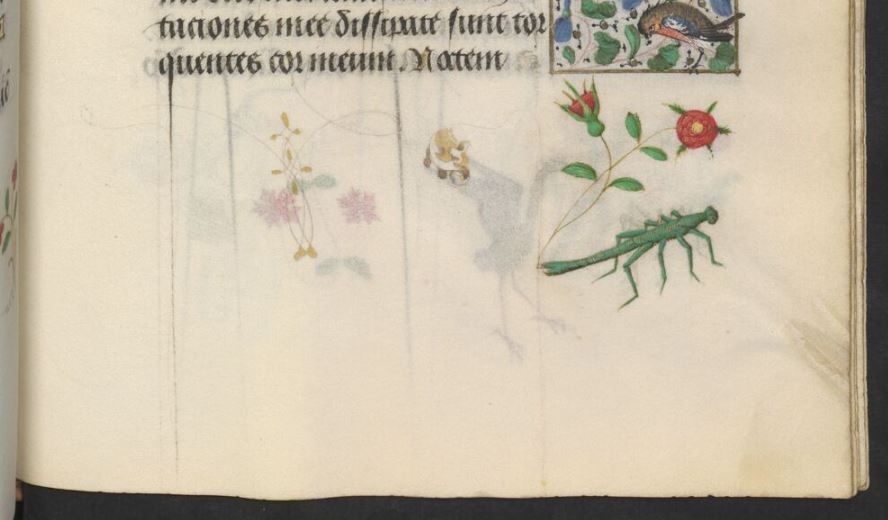 taciones mee dissipate sunt tor
quentes cor meum Noctem